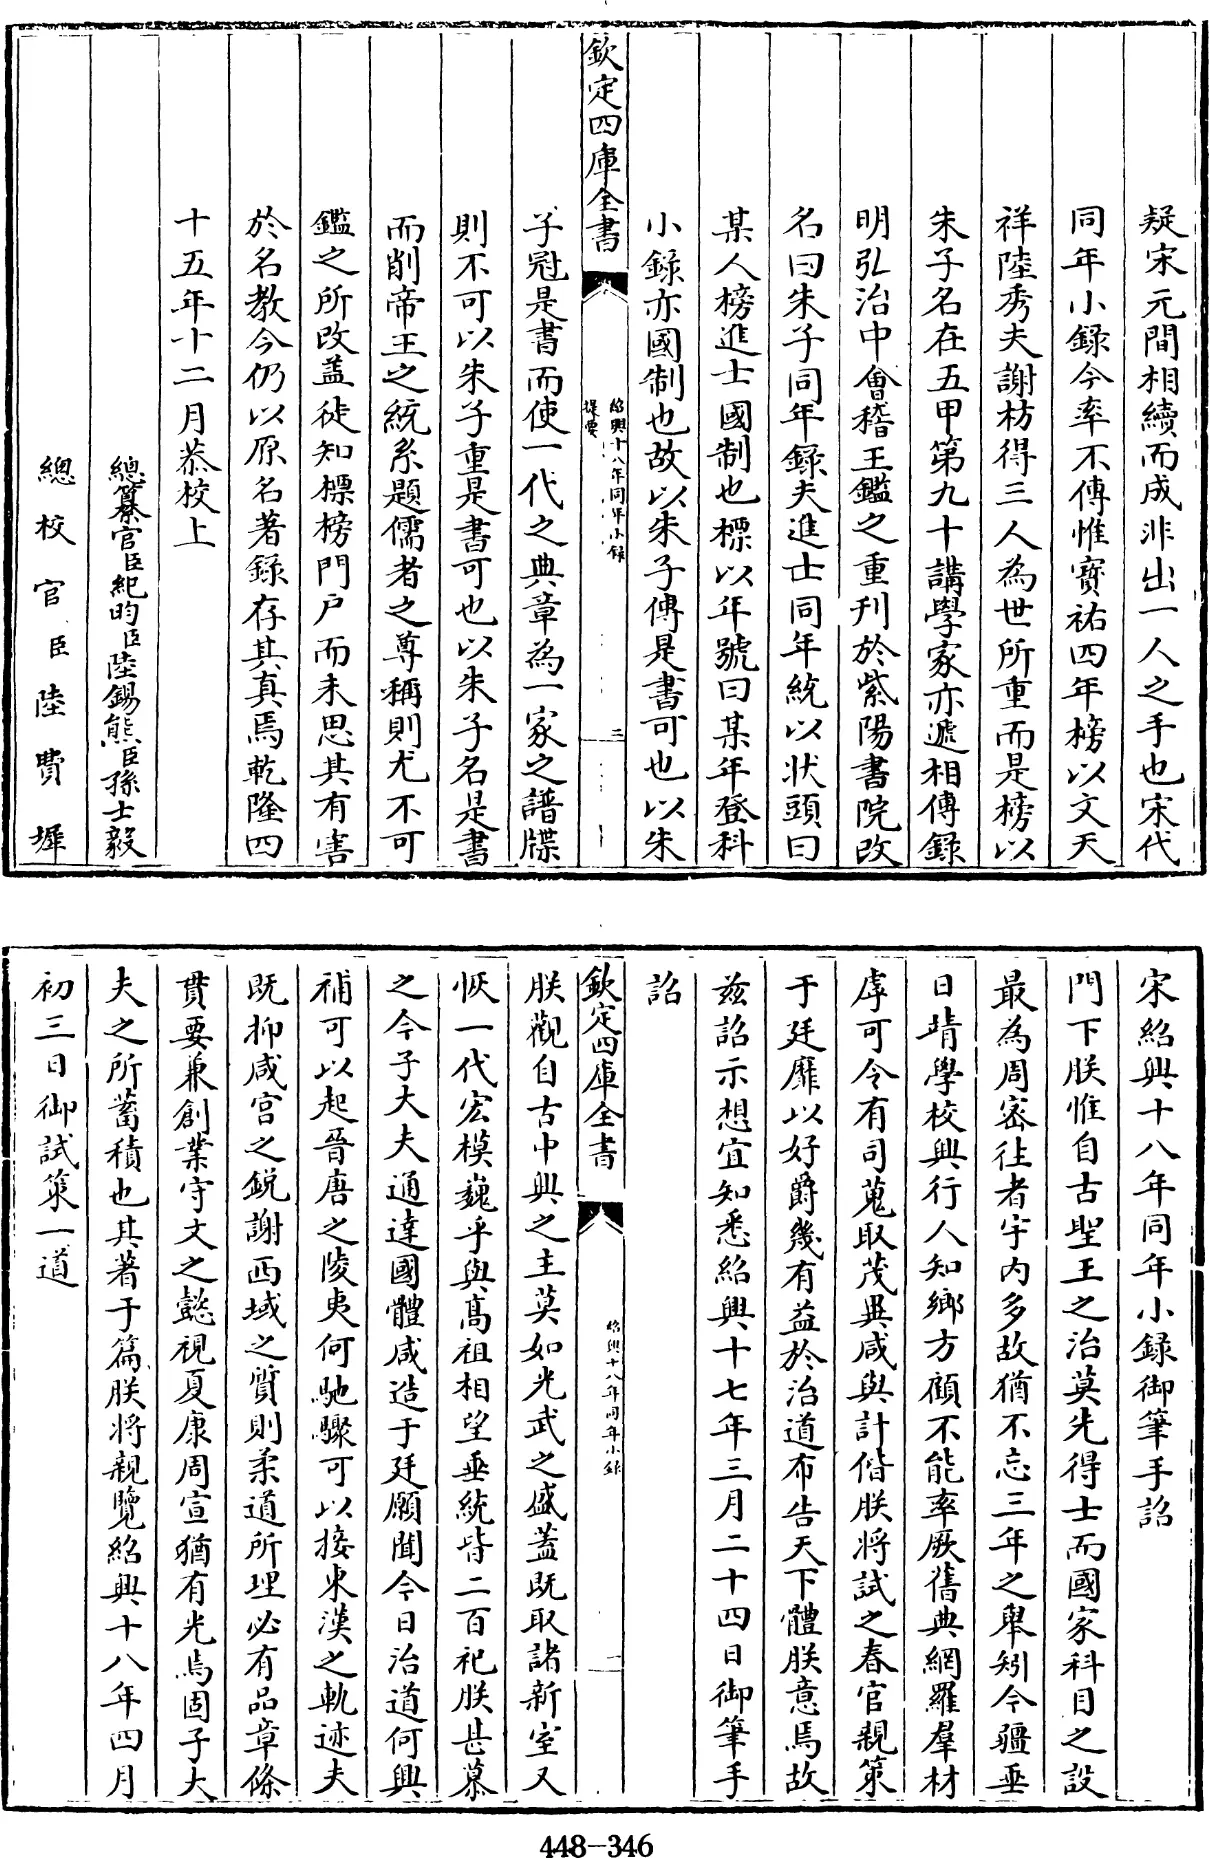 疑宋元間相續而成非出一人之手也宋代
同年小錄今率不傳惟寶祐四年榜以文天
祥陸秀夫謝枋得三人為世所重而是榜以
朱子名在五甲第九十講學家亦遞相傳錄
明弘治中會稽王鑑之重刊於紫陽書院改
名曰朱子同年錄夫進士同年統以狀頭曰
某人榜進士國制也標以年號曰某年登科
小錄亦國制也故以朱子傳是書可也以朱
欽定四庫全書
紹興十八年同年小錄
提要
三
子冠是書而使一代之典章為一家之譜牒
則不可以朱子重是書可也以朱子名是書
而削帝王之統系題儒者之尊稱則尤不可
鑑之所改盖徒知標榜門戶而未思其有害
於名教今仍以原名著錄存其真焉乾隆四
十五年十二月恭校上
總纂官臣紀昀臣陸錫熊臣孫士毅
總校官臣陸費墀
宋紹興十八年同年小錄御筆手詔
門下朕惟自古聖王之治莫先得士而國家科目之設
最為周密往者宇内多故猶不忘三年之舉矧今疆垂
日靖學校興行人知鄉方顧不能率厥舊典網羅羣材
虖可令有司蒐取茂異咸與計偕朕將試之春官親策
于廷靡以好爵幾有益於治道布告天下體朕意焉故
茲詔示想宜知悉紹興十七年三月二十四日御筆手
詔
欽定四庫全書
紹興十八年同年小錄
一
朕觀自古中興之主莫如光武之盛盖既取諸新室又
恢一代宏模巍乎與髙祖相望垂統皆二百祀朕甚慕
之今子大夫通達國體咸造于廷願聞今日治道何興
補可以起晉唐之陵夷何馳驟可以接東漢之軌迹夫
既抑咸宫之銳謝西域之質則柔道所理必有品章條
貫要兼創業守文之懿視夏康周宣猶有光焉固子大
夫之所蓄積也其著于篇朕將親覽紹興十八年四月
初三日御試策一道
448-346